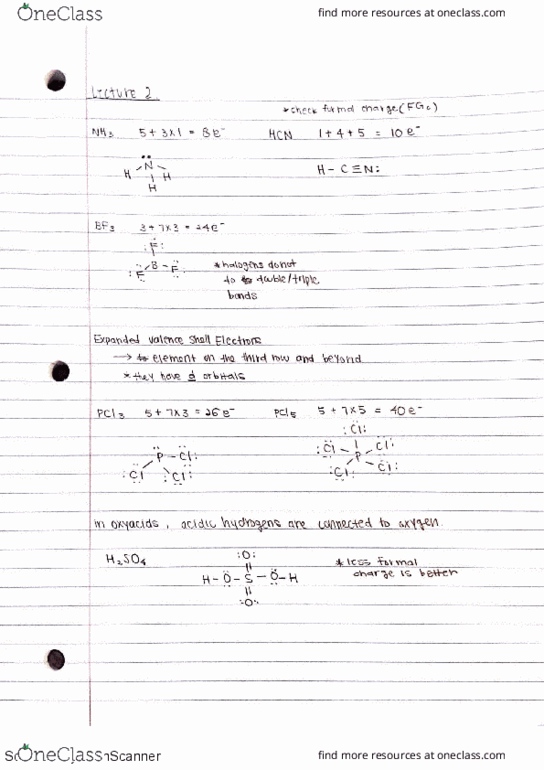 OneClass
find more resources at oneclass.com
Lecture 2
*check formal charge (FGc)
NH3 5 + 3x1 = 8e-
HCN 1 + 4 + 5 = 10e-
N
H H
H
H - C ≡ N:
BF3 3 + 7x3 = 24e-
:F:
:F B - F:
*halogens do not
do double/triple
bonds
Expanded valence shell Electrons
→ element on the third row and beyond
*they have d orbitals
PCl3 5 + 7x3 = 26e-
PCl5 5 + 7x5 = 40e-
P - Cl:
:Cl :Cl:
:Cl:
:Cl P Cl:
:Cl Cl:
in oxyacids, acidic hydrogens are connected to oxygen.
H2SO4
:O:
H - O - S - O - H
:O:
*less formal
charge is better
OneClass
Scanner
find more resources at oneclass.com